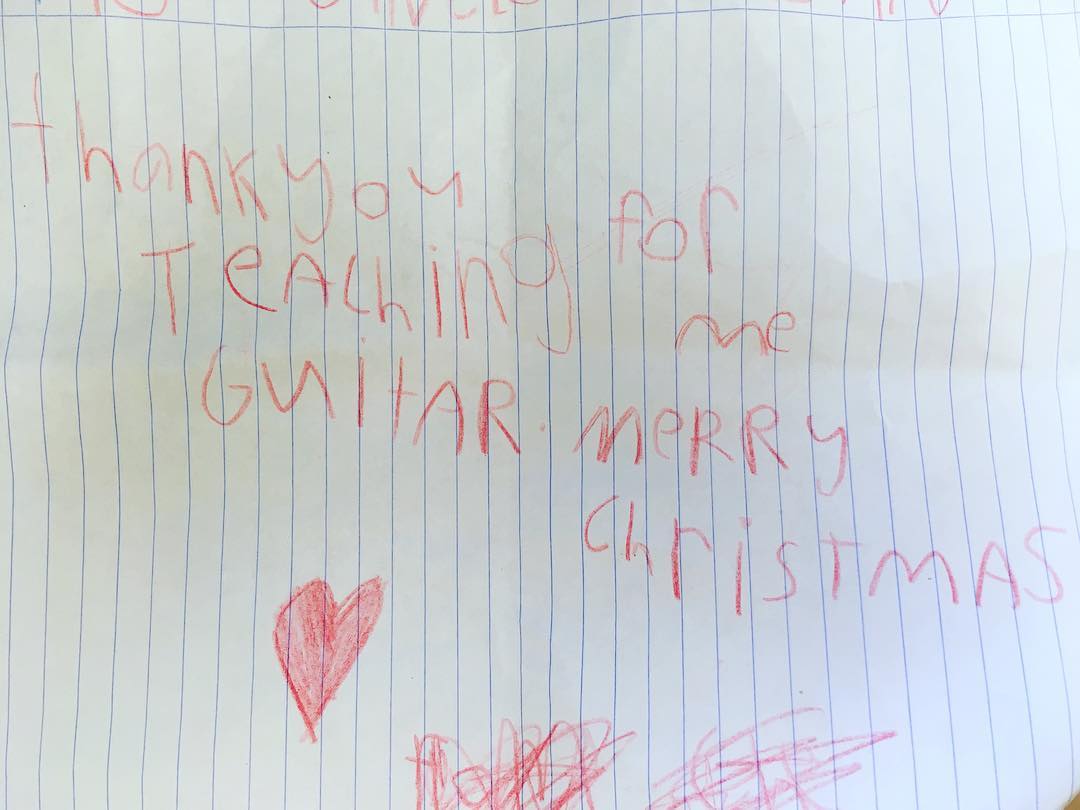 thankyou for
TeAching me
GuitAR. meRRy
ChrisTmAS